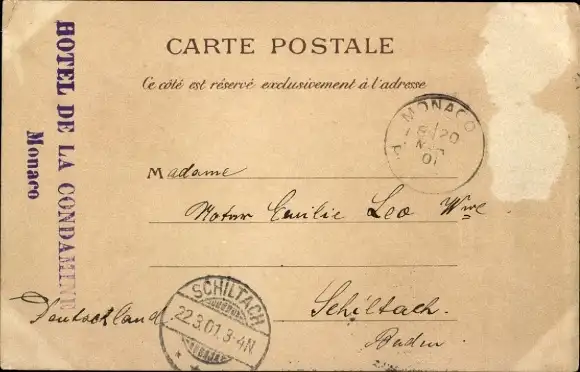 CARTE POSTALE
Ce côté est réservé exclusivement à l'adresse
HOTEL DE LA CONDAMINE
Monaco
MONACO
20
01
Madame
Emilie Leo Wwe
Schiltach.
Baden
Deutschland
SCHILTACH
22.3.01.3-4N